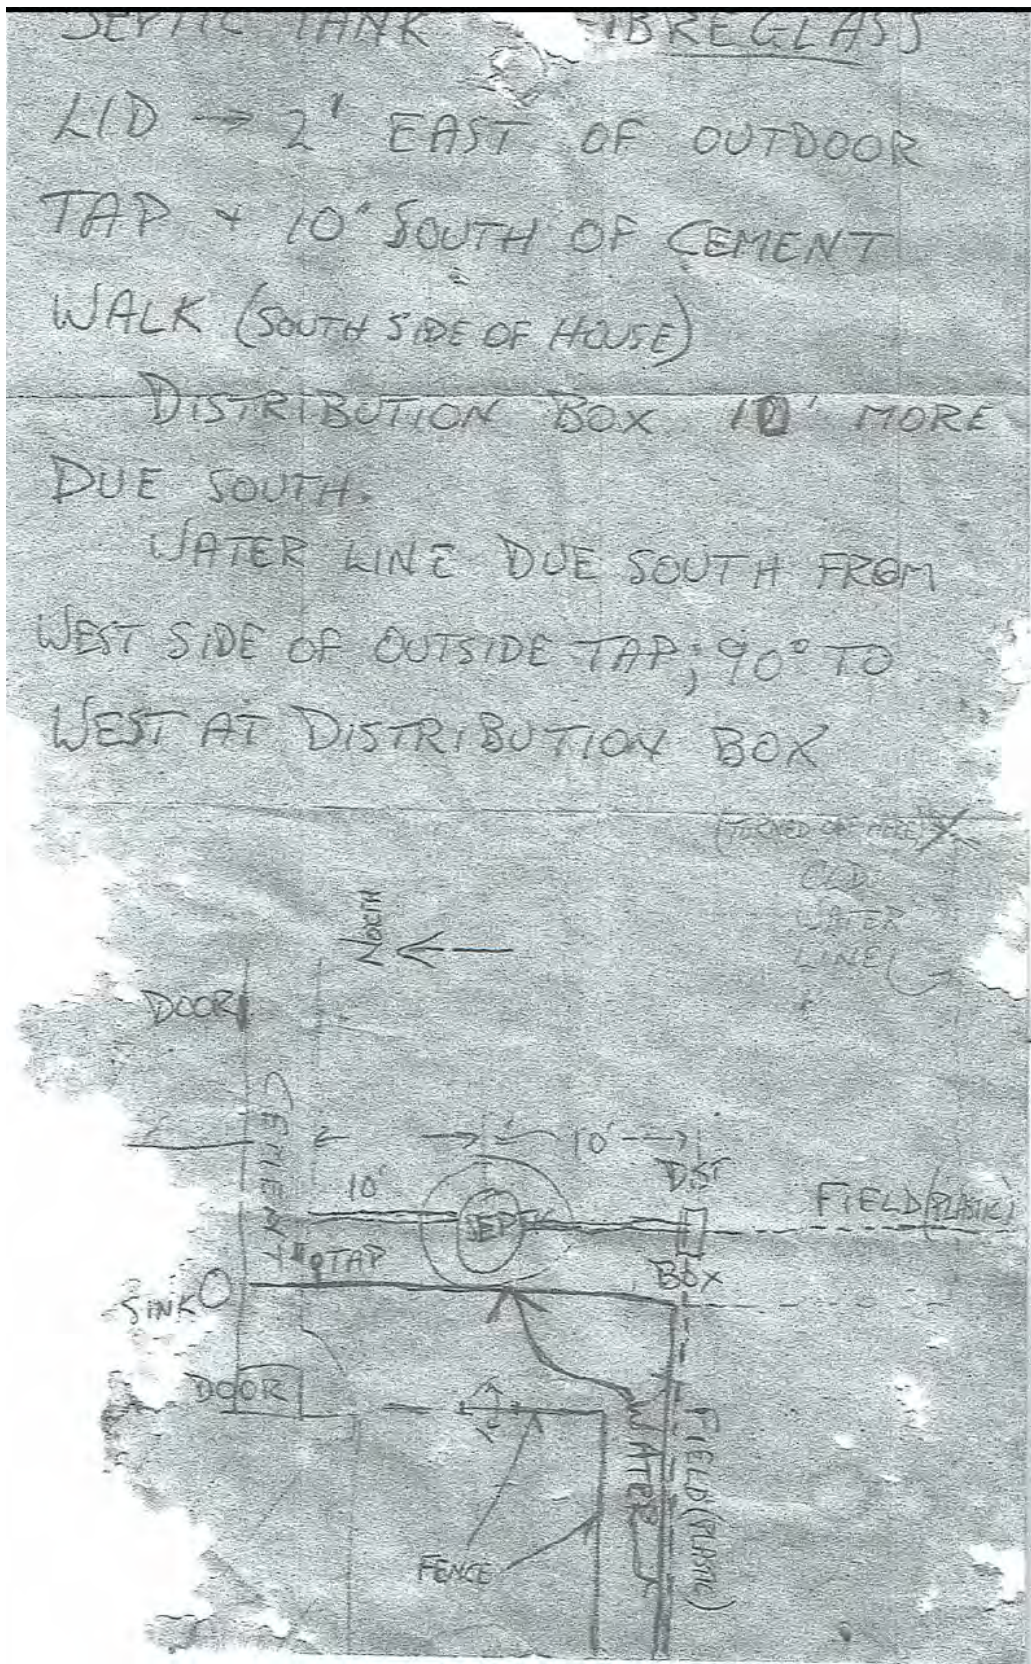 SEPTIC TANK FIBREGLASS
LID → 2' EAST OF OUTDOOR
TAP + 10' SOUTH OF CEMENT
WALK (SOUTH SIDE OF HOUSE)
DISTRIBUTION BOX 10' MORE
DUE SOUTH.
WATER LINE DUE SOUTH FROM
WEST SIDE OF OUTSIDE TAP; 90° TO
WEST AT DISTRIBUTION BOX
(TURNED OFF HERE) X
OLD
WATER
LINE
NORTH
DOOR
CEMENT
10'
10'
DIST
BOX
SEPTIC
FIELD (PLASTIC)
TAP
SINK
DOOR
WATER
FIELD (PLASTIC)
FENCE